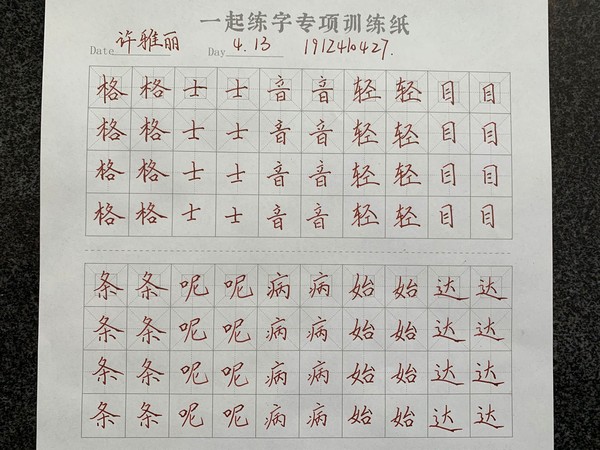 一起练字专项训练纸
Date 许雅丽 Day 4.13 1912410427.
格 格 士 士 音 音 轻 轻 目 目
格 格 士 士 音 音 轻 轻 目 目
格 格 士 士 音 音 轻 轻 目 目
格 格 士 士 音 音 轻 轻 目 目
条 条 呢 呢 病 病 始 始 达 达
条 条 呢 呢 病 病 始 始 达 达
条 条 呢 呢 病 病 始 始 达 达
条 条 呢 呢 病 病 始 始 达 达